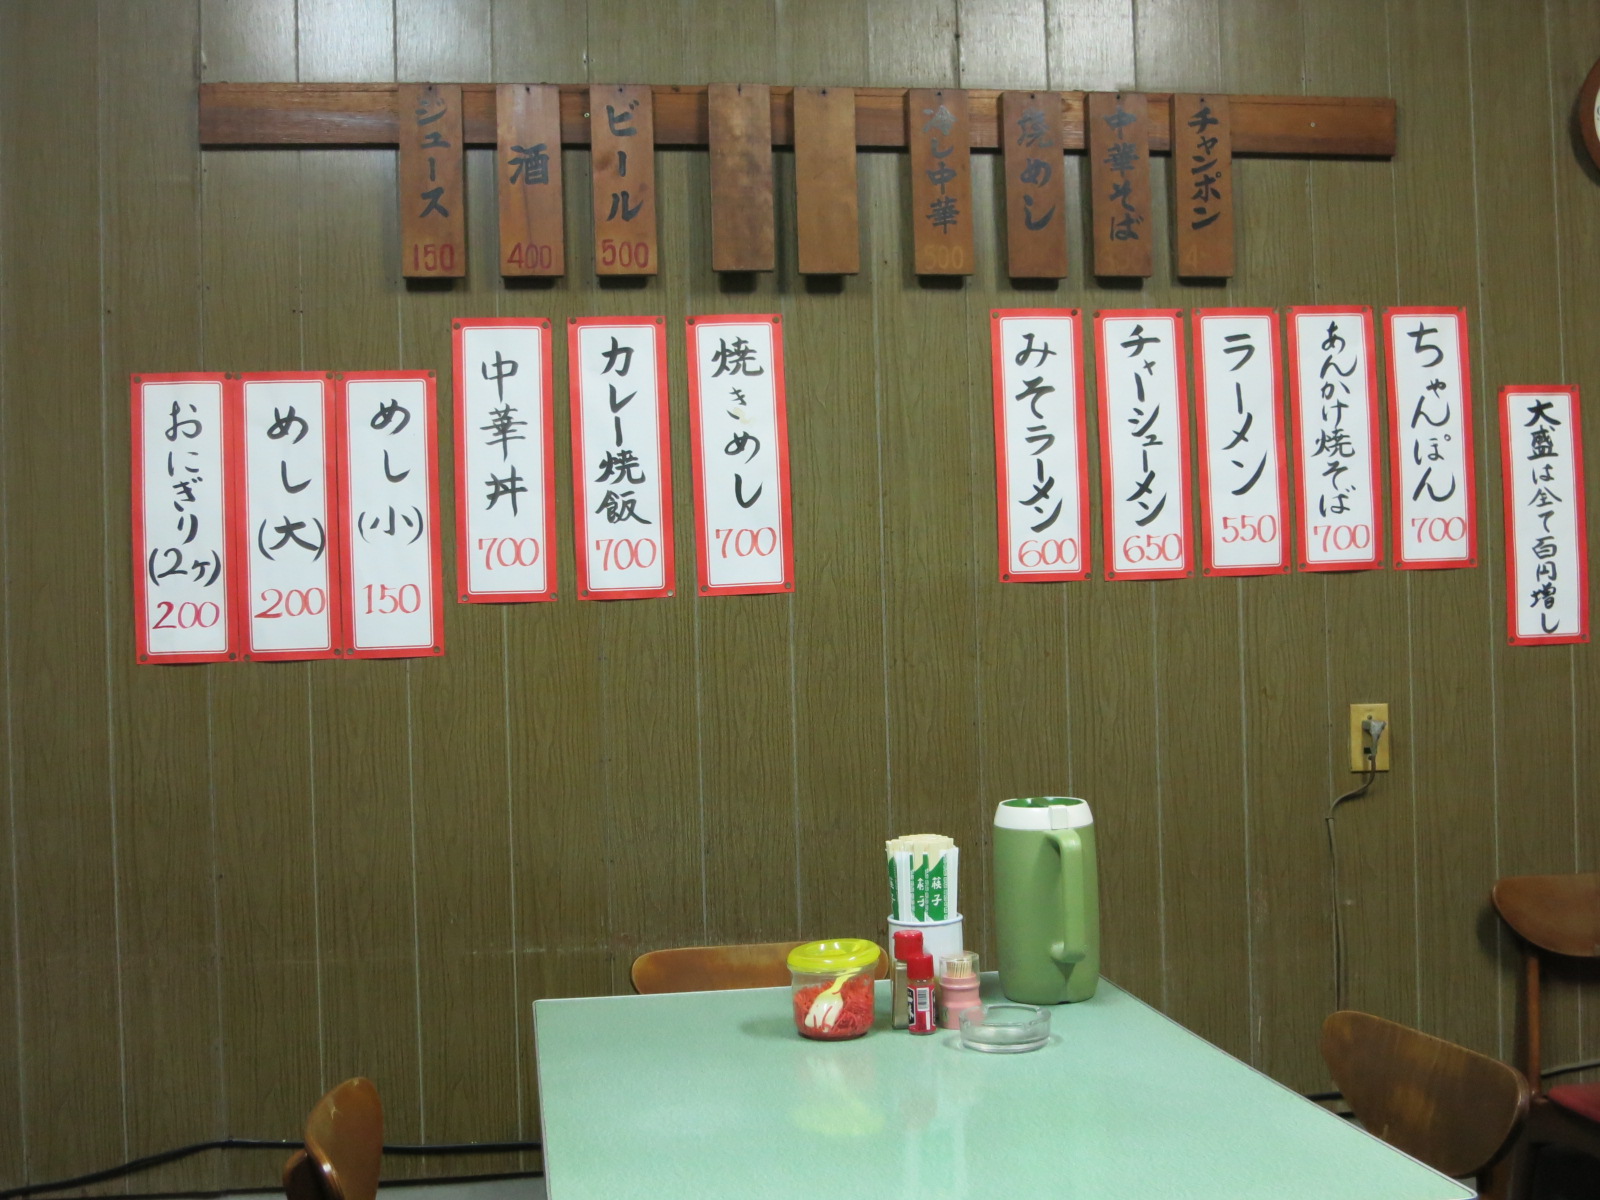 チャンポン
中華そば
焼めし
冷し中華
500
ビール
500
酒
400
ジュース
150
大盛は全て百円増し
ちゃんぽん
700
あんかけ焼そば
700
ラーメン
550
チャーシューメン
650
みそラーメン
600
焼きめし
700
カレー焼飯
700
中華丼
700
めし(小)
150
めし(大)
200
おにぎり(2ヶ)
200
筷子
筷子